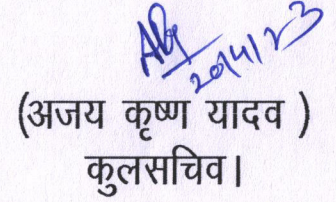 20/4/23
(अजय कृष्ण यादव )
कुलसचिव।